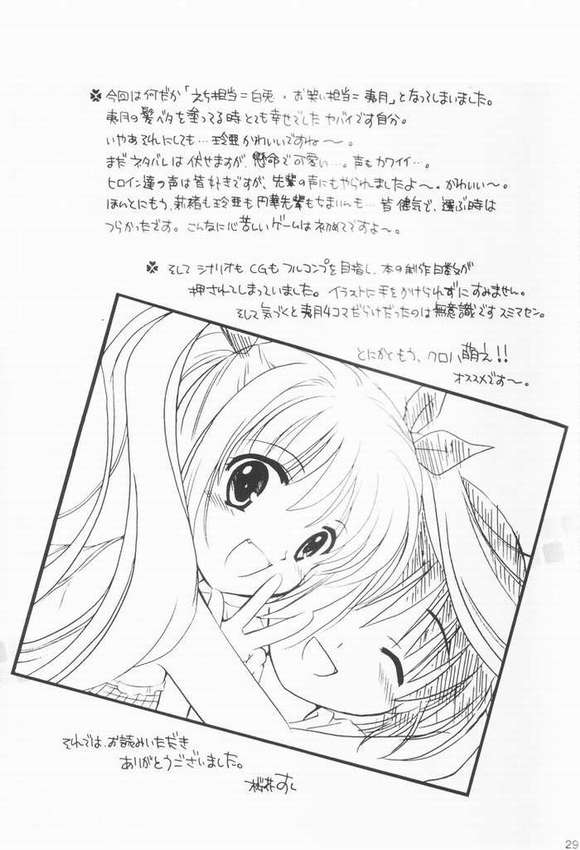 今回は何だか「えち担当=白兎・お笑い担当=夷月」となってしまいました。
夷月の髪ベタを塗ってる時とても幸せでした ヤバイです自分。
いやあそれにしても…玲亜かわいいですねー〜。
まだネタバレは伏せますが、懸命で可愛い…。声もカワイイ…。
ヒロイン達の声は皆好きですが、先輩の声にもやられましたよ〜。かわいい〜。
ほんとにもう、茉結も玲亜も円華先輩もちまいんも…皆健気で、選ぶ時は
つらかったです。こんなに心苦しいゲームは初めてですよ〜。
そしてシナリオもCGもフルコンプを目指し、本の制作日数が
押されてしまっていました。イラストに手をかけられずにすみません。
そして気づくと夷月4コマだらけだったのは無意識ですスミマセン。
とにかくもう、クロハ萌え!!
オススメです〜。
それでは、お読みいただき
ありがとうございました。
29